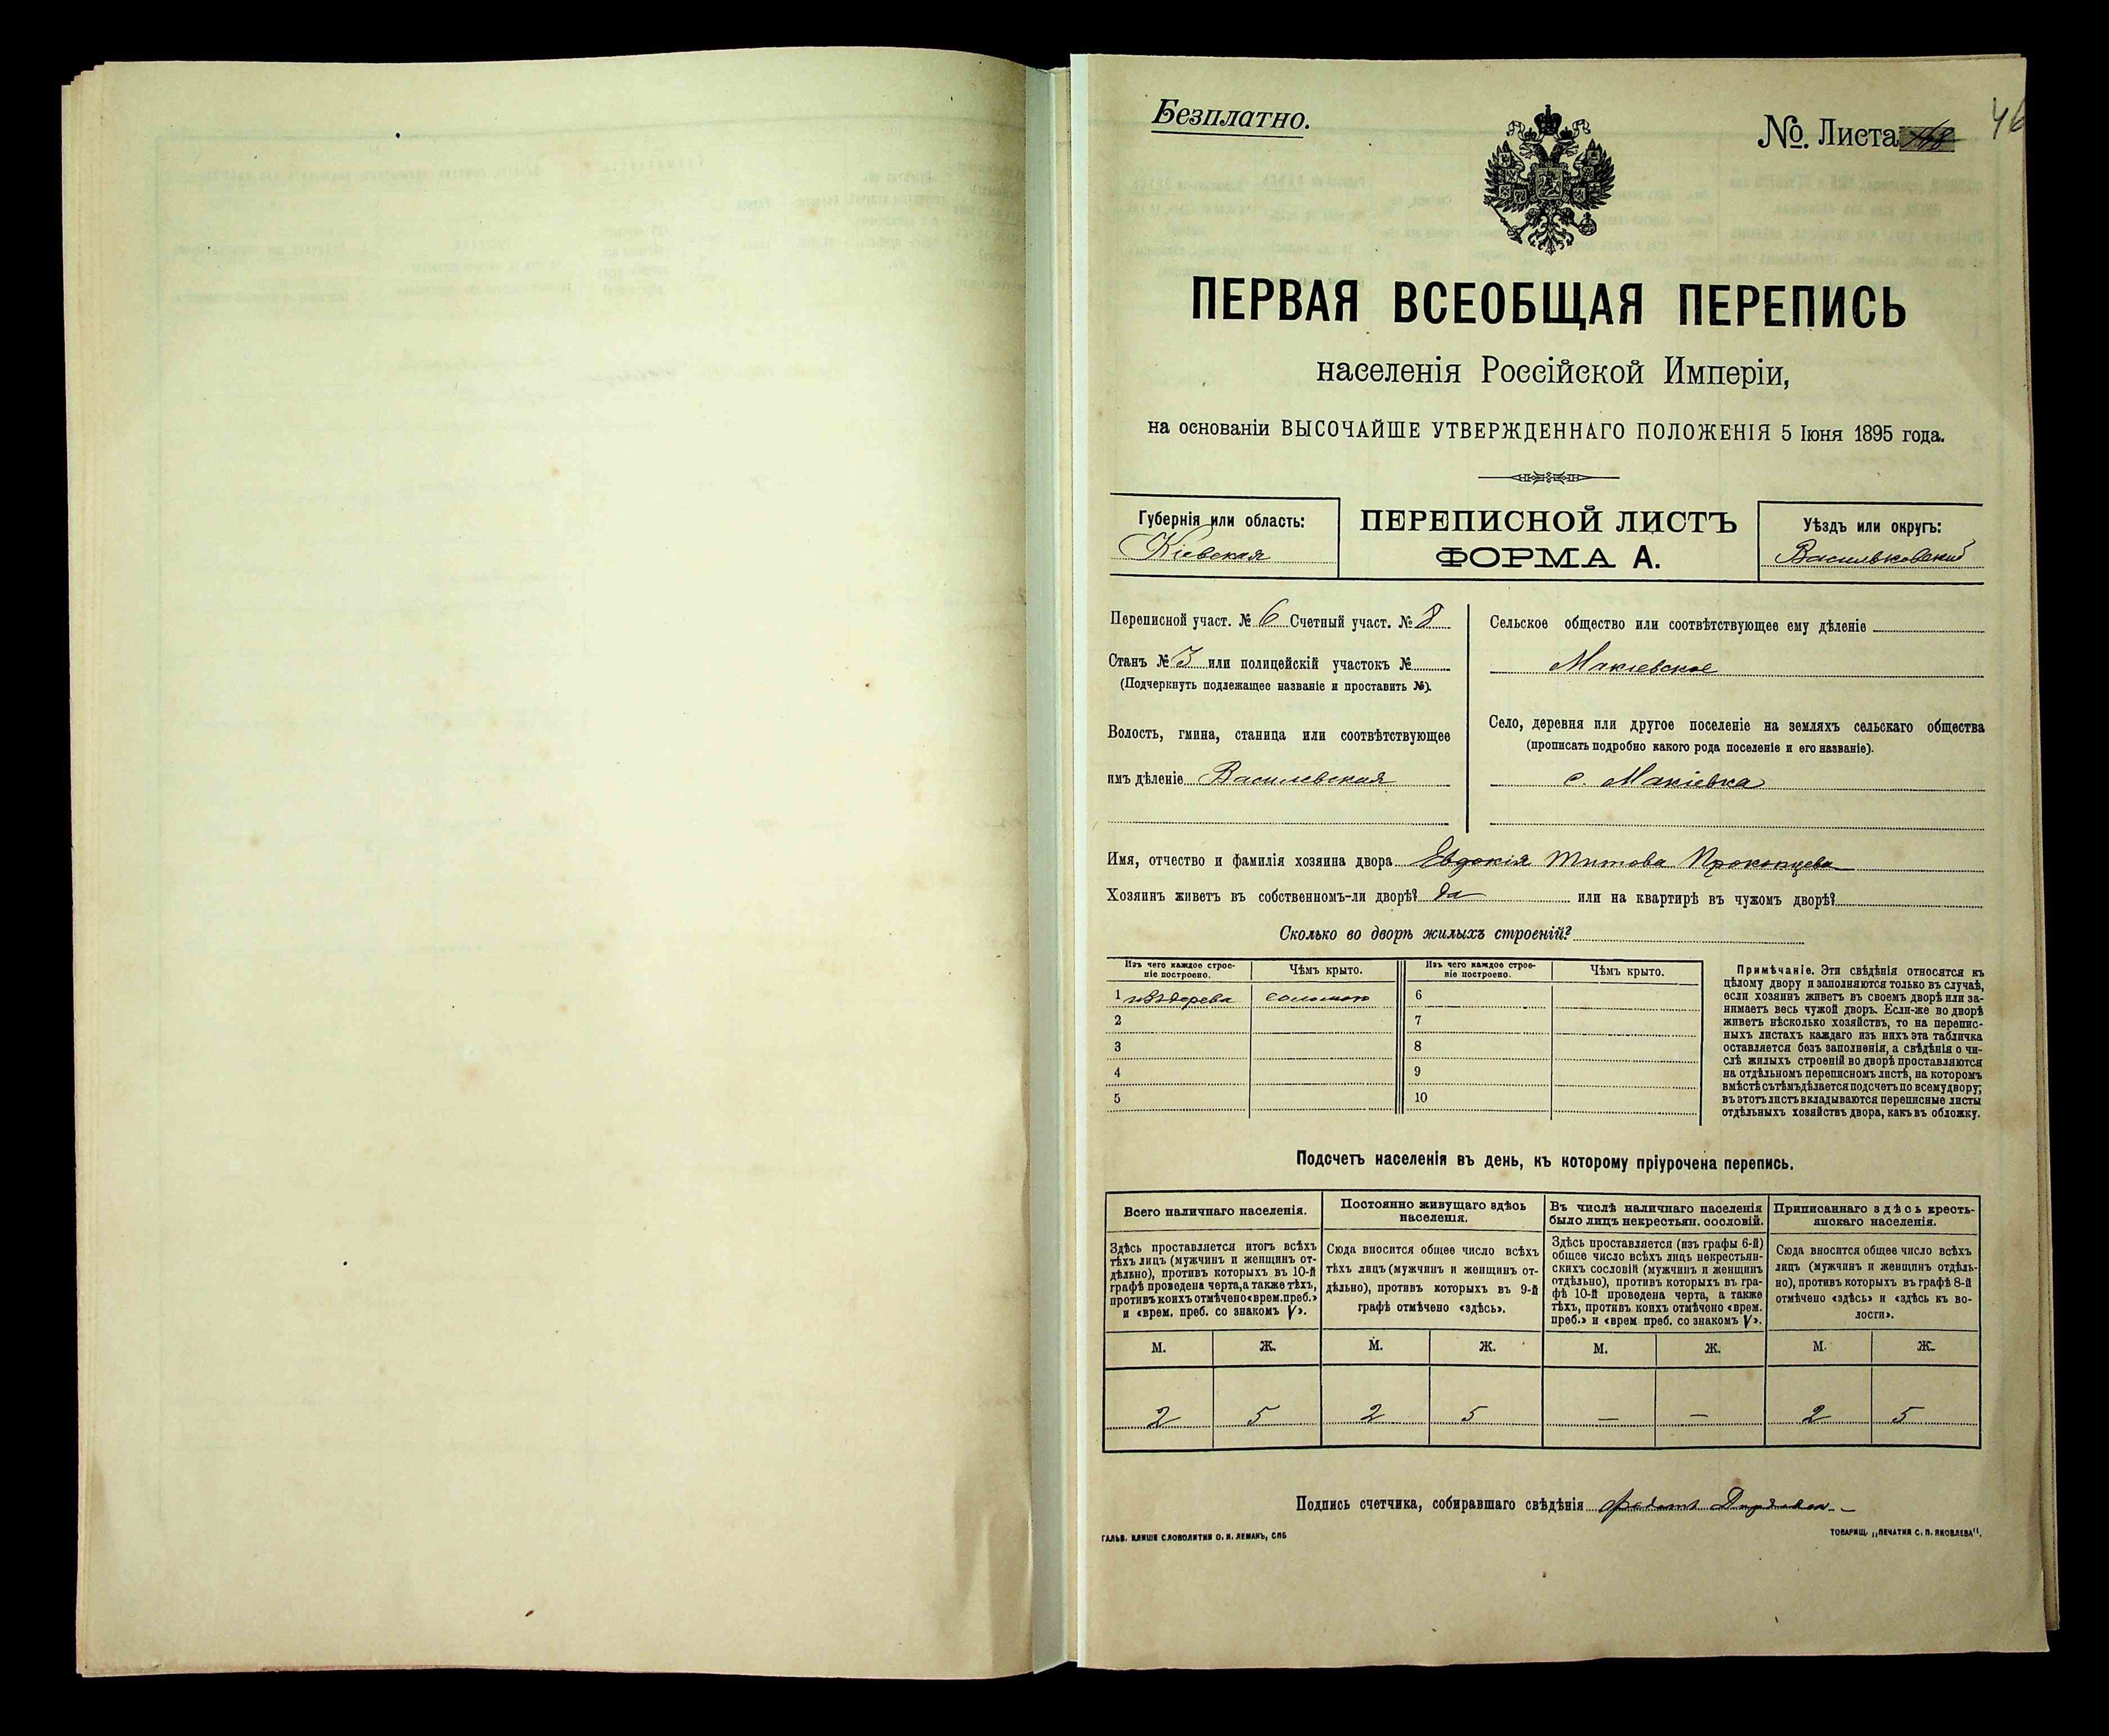 Безплатно.
№. Листа
46
ПЕРВАЯ ВСЕОБЩАЯ ПЕРЕПИСЬ
населенія Россійской Имперіи,
на основаніи ВЫСОЧАЙШЕ УТВЕРЖДЕННАГО ПОЛОЖЕНІЯ 5 Іюня 1895 года.
Губернія или область:
Кіевская
ПЕРЕПИСНОЙ ЛИСТЪ
ФОРМА А.
Уѣздъ или округъ:
Васильковскій
Переписной участ. № 6 Счетный участ. № 8
Станъ № 3 или полицейскій участокъ №
(Подчеркнуть подлежащее названіе и проставить №).
Волость, гмина, станица или соотвѣтствующее
имъ дѣленіе Василевская
Сельское общество или соотвѣтствующее ему дѣленіе
Макіевское
Село, деревня или другое поселеніе на земляхъ сельскаго общества
(прописать подробно какого рода поселеніе и его названіе).
с. Макіевка
Имя, отчество и фамилія хозяина двора Евдокія Титова Прокопцева
Хозяинъ живетъ въ собственномъ-ли дворѣ? да или на квартирѣ въ чужомъ дворѣ?
Сколько во дворѣ жилыхъ строеній?
Изъ чего каждое строе-
ніе построено.
Чѣмъ крыто.
Изъ чего каждое строе-
ніе построено.
Чѣмъ крыто.
1 изъ дерева соломою 6
2 7
3 8
4 9
5 10
Примѣчаніе. Эти свѣдѣнія относятся къ
цѣлому двору и заполняются только въ случаѣ,
если хозяинъ живетъ въ своемъ дворѣ или за-
нимаетъ весь чужой дворъ. Если-же во дворѣ
живетъ нѣсколько хозяйствъ, то на перепис-
ныхъ листахъ каждаго изъ нихъ эта табличка
оставляется безъ заполненія, а свѣдѣнія о чи-
слѣ жилыхъ строеній во дворѣ проставляются
на отдѣльномъ переписномъ листѣ, на которомъ
вмѣстѣ съ тѣмъ дѣлается подсчетъ по всему двору;
въ этотъ листъ вкладываются переписные листы
отдѣльныхъ хозяйствъ двора, какъ въ обложку.
Подсчетъ населенія въ день, къ которому пріурочена перепись.
Всего наличнаго населенія.
Здѣсь проставляется итогъ всѣхъ
тѣхъ лицъ (мужчинъ и женщинъ от-
дѣльно), противъ которыхъ въ 10-й
графѣ проведена черта, а также тѣхъ,
противъ коихъ отмѣчено «врем. преб.»
и «врем. преб. со знакомъ V».
Постоянно живущаго здѣсь
населенія.
Сюда вносится общее число всѣхъ
тѣхъ лицъ (мужчинъ и женщинъ от-
дѣльно), противъ которыхъ въ 9-й
графѣ отмѣчено «здѣсь».
Въ числѣ наличнаго населенія
было лицъ некрестьян. сословій.
Здѣсь проставляется (изъ графы 6-й)
общее число всѣхъ лицъ некрестьян-
скихъ сословій (мужчинъ и женщинъ
отдѣльно), противъ которыхъ въ гра-
фѣ 10-й проведена черта, а также
тѣхъ, противъ коихъ отмѣчено «врем.
преб.» и «врем преб. со знакомъ V».
Приписаннаго здѣсь кресть-
янскаго населенія.
Сюда вносится общее число всѣхъ
лицъ (мужчинъ и женщинъ отдѣль-
но), противъ которыхъ въ графѣ 8-й
отмѣчено «здѣсь» и «здѣсь къ во-
лости».
М. Ж. М. Ж. М. Ж. М. Ж.
2 5 2 5 — — 2 5
Подпись счетчика, собиравшаго свѣдѣнія
ГАЛЬВ. КЛИШЕ СЛОВОЛИТНИ О. И. ЛЕМАНЪ, СПБ
ТОВАРИЩ. „ПЕЧАТНЯ С. П. ЯКОВЛЕВА“.